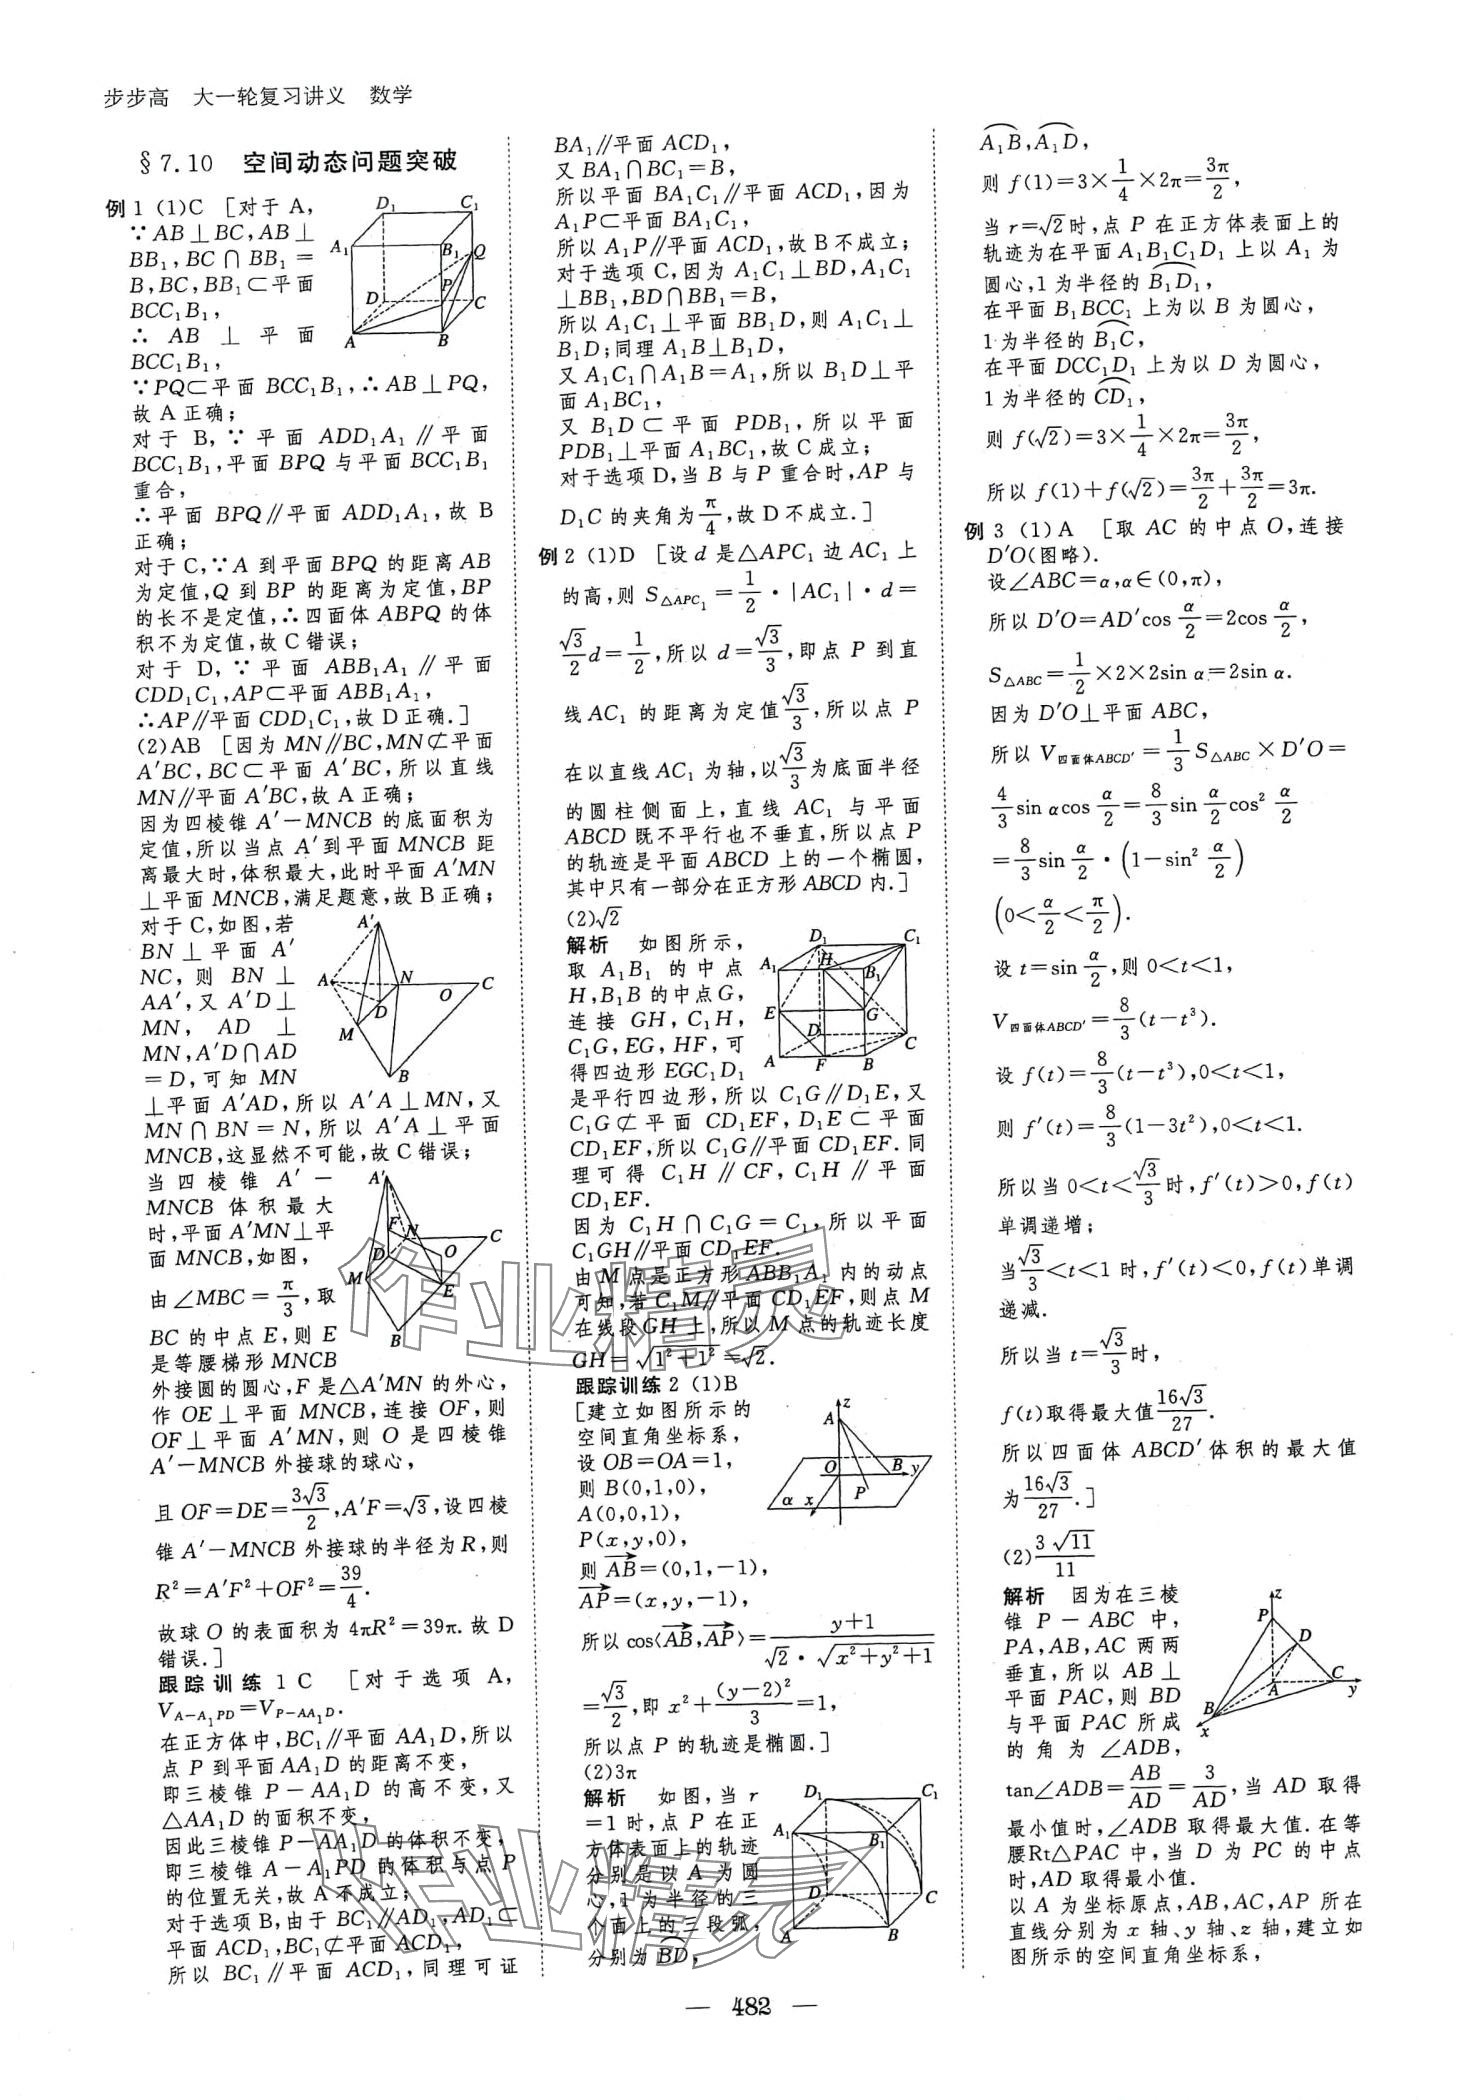 步步高 大一轮复习讲义 数学
§7.10 空间动态问题突破
例1 (1)C [对于A,
∵AB⊥BC,AB⊥
BB₁,BC∩BB₁=
B,BC,BB₁⊂平面
BCC₁B₁,
∴AB⊥平面
BCC₁B₁,
∵PQ⊂平面BCC₁B₁,∴AB⊥PQ,
故A正确;
对于B,∵平面ADD₁A₁∥平面
BCC₁B₁,平面BPQ与平面BCC₁B₁
重合,
∴平面BPQ∥平面ADD₁A₁,故B
正确;
对于C,∵A到平面BPQ的距离AB
为定值,Q到BP的距离为定值,BP
的长不是定值,∴四面体ABPQ的体
积不为定值,故C错误;
对于D,∵平面ABB₁A₁∥平面
CDD₁C₁,AP⊂平面ABB₁A₁,
∴AP∥平面CDD₁C₁,故D正确.]
(2)AB [因为MN∥BC,MN⊄平面
A′BC,BC⊂平面A′BC,所以直线
MN∥平面A′BC,故A正确;
因为四棱锥A′-MNCB的底面积为
定值,所以当点A′到平面MNCB距
离最大时,体积最大,此时平面A′MN
⊥平面MNCB,满足题意,故B正确;
对于C,如图,若
BN⊥平面A′
NC,则BN⊥
AA′,又A′D⊥
MN,AD⊥
MN,A′D∩AD
=D,可知MN
⊥平面A′AD,所以A′A⊥MN,又
MN∩BN=N,所以A′A⊥平面
MNCB,这显然不可能,故C错误;
当四棱锥A′-
MNCB体积最大
时,平面A′MN⊥平
面MNCB,如图,
由∠MBC=π/3,取
BC的中点E,则E
是等腰梯形MNCB
外接圆的圆心,F是△A′MN的外心,
作OE⊥平面MNCB,连接OF,则
OF⊥平面A′MN,则O是四棱锥
A′-MNCB外接球的球心,
且OF=DE=3√3/2,A′F=√3,设四棱
锥A′-MNCB外接球的半径为R,则
R²=A′F²+OF²=39/4.
故球O的表面积为4πR²=39π.故D
错误.]
跟踪训练1 C [对于选项A,
V_{A-A₁PD}=V_{P-AA₁D}.
在正方体中,BC₁∥平面AA₁D,所以
点P到平面AA₁D的距离不变,
即三棱锥P-AA₁D的高不变,又
△AA₁D的面积不变,
因此三棱锥P-AA₁D的体积不变,
即三棱锥A-A₁PD的体积与点P
的位置无关,故A不成立;
对于选项B,由于BC₁∥AD₁,AD₁⊂
平面ACD₁,BC₁⊄平面ACD₁,
所以BC₁∥平面ACD₁,同理可证
BA₁∥平面ACD₁,
又BA₁∩BC₁=B,
所以平面BA₁C₁∥平面ACD₁,因为
A₁P⊂平面BA₁C₁,
所以A₁P∥平面ACD₁,故B不成立;
对于选项C,因为A₁C₁⊥BD,A₁C₁
⊥BB₁,BD∩BB₁=B,
所以A₁C₁⊥平面BB₁D,则A₁C₁⊥
B₁D;同理A₁B⊥B₁D,
又A₁C₁∩A₁B=A₁,所以B₁D⊥平
面A₁BC₁,
又B₁D⊂平面PDB₁,所以平面
PDB₁⊥平面A₁BC₁,故C成立;
对于选项D,当B与P重合时,AP与
D₁C的夹角为π/4,故D不成立.]
例2 (1)D [设d是△APC₁边AC₁上
的高,则S_{△APC₁}=1/2·|AC₁|·d=
√3/2 d=1/2,所以d=√3/3,即点P到直
线AC₁的距离为定值√3/3,所以点P
在以直线AC₁为轴,以√3/3为底面半径
的圆柱侧面上,直线AC₁与平面
ABCD既不平行也不垂直,所以点P
的轨迹是平面ABCD上的一个椭圆,
其中只有一部分在正方形ABCD内.]
(2)√2
解析 如图所示,
取A₁B₁的中点
H,B₁B的中点G,
连接GH,C₁H,
C₁G,EG,HF,可
得四边形EGC₁D₁
是平行四边形,所以C₁G∥D₁E,又
C₁G⊄平面CD₁EF,D₁E⊂平面
CD₁EF,所以C₁G∥平面CD₁EF.同
理可得C₁H∥CF,C₁H∥平面
CD₁EF.
因为C₁H∩C₁G=C₁,所以平面
C₁GH∥平面CD₁EF.
由M点是正方形ABB₁A₁内的动点
可知,若C₁M∥平面CD₁EF,则点M
在线段GH上,所以M点的轨迹长度
GH=√(1²+1²)=√2.
跟踪训练2 (1)B
[建立如图所示的
空间直角坐标系,
设OB=OA=1,
则B(0,1,0),
A(0,0,1),
P(x,y,0),
则AB→=(0,1,-1),
AP→=(x,y,-1),
所以cos⟨AB→,AP→⟩=(y+1)/(√2·√(x²+y²+1))
=√3/2,即x²+(y-2)²/3=1,
所以点P的轨迹是椭圆.]
(2)3π
解析 如图,当r
=1时,点P在正
方体表面上的轨迹
分别是以A为圆
心,1为半径的三
个面上的三段弧,
分别为BD⌢,
A₁B⌢,A₁D⌢,
则f(1)=3×1/4×2π=3π/2,
当r=√2时,点P在正方体表面上的
轨迹为在平面A₁B₁C₁D₁上以A₁为
圆心,1为半径的B₁D₁⌢,
在平面B₁BCC₁上为以B为圆心,
1为半径的B₁C⌢,
在平面DCC₁D₁上为以D为圆心,
1为半径的CD₁⌢,
则f(√2)=3×1/4×2π=3π/2,
所以f(1)+f(√2)=3π/2+3π/2=3π.
例3 (1)A [取AC的中点O,连接
D′O(图略).
设∠ABC=α,α∈(0,π),
所以D′O=AD′cos α/2=2cos α/2,
S_{△ABC}=1/2×2×2sin α=2sin α.
因为D′O⊥平面ABC,
所以V_{四面体ABCD′}=1/3 S_{△ABC}×D′O=
4/3 sin αcos α/2=8/3 sin α/2 cos² α/2
=8/3 sin α/2·(1-sin² α/2)
(0<α/2<π/2).
设t=sin α/2,则0<t<1,
V_{四面体ABCD′}=8/3(t-t³).
设f(t)=8/3(t-t³),0<t<1,
则f′(t)=8/3(1-3t²),0<t<1.
所以当0<t<√3/3时,f′(t)>0,f(t)
单调递增;
当√3/3<t<1时,f′(t)<0,f(t)单调
递减.
所以当t=√3/3时,
f(t)取得最大值16√3/27.
所以四面体ABCD′体积的最大值
为16√3/27.]
(2)3√11/11
解析 因为在三棱
锥P-ABC中,
PA,AB,AC两两
垂直,所以AB⊥
平面PAC,则BD
与平面PAC所成
的角为∠ADB,
tan∠ADB=AB/AD=3/AD,当AD取得
最小值时,∠ADB取得最大值.在等
腰Rt△PAC中,当D为PC的中点
时,AD取得最小值.
以A为坐标原点,AB,AC,AP所在
直线分别为x轴、y轴、z轴,建立如
图所示的空间直角坐标系,
— 482 —
作业精灵
作业精灵